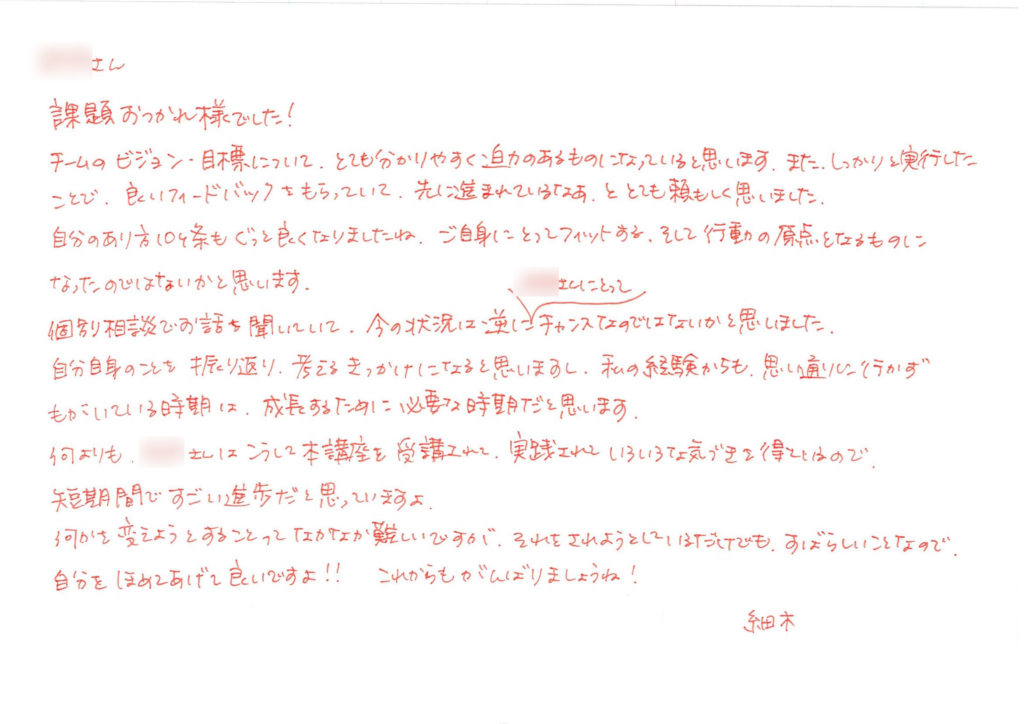 さん
課題おつかれ様でした!
チームのビジョン・目標について、とても分かりやすく迫力のあるものになっていると思います。また、しっかりと実行した
ことで、良いフィードバックをもらっていて、先に進まれているなあ、ととても頼もしく思いました。
自分のあり方10ヶ条もぐっと良くなりましたね。ご自身にとってフィットする、そして行動の原点となるものに
なったのではないかと思います。
さんにとって
個別相談でお話を聞いていて、今の状況は逆にチャンスなのではないかと思いました。
自分自身のことを振り返り、考えるきっかけになると思いますし、私の経験からも、思い通りに行かず
もがいている時期は、成長するために必要な時期だと思います。
何よりも、さんはこうして本講座を受講されて、実践されていろいろな気づきを得ているので、
短期間ですごい進歩だと思っていますよ。
何かを変えようとすることってなかなか難しいですが、それをされようとしているだけでも、すばらしいことなので、
自分をほめてあげて良いですよ!! これからもがんばりましょうね!
細木